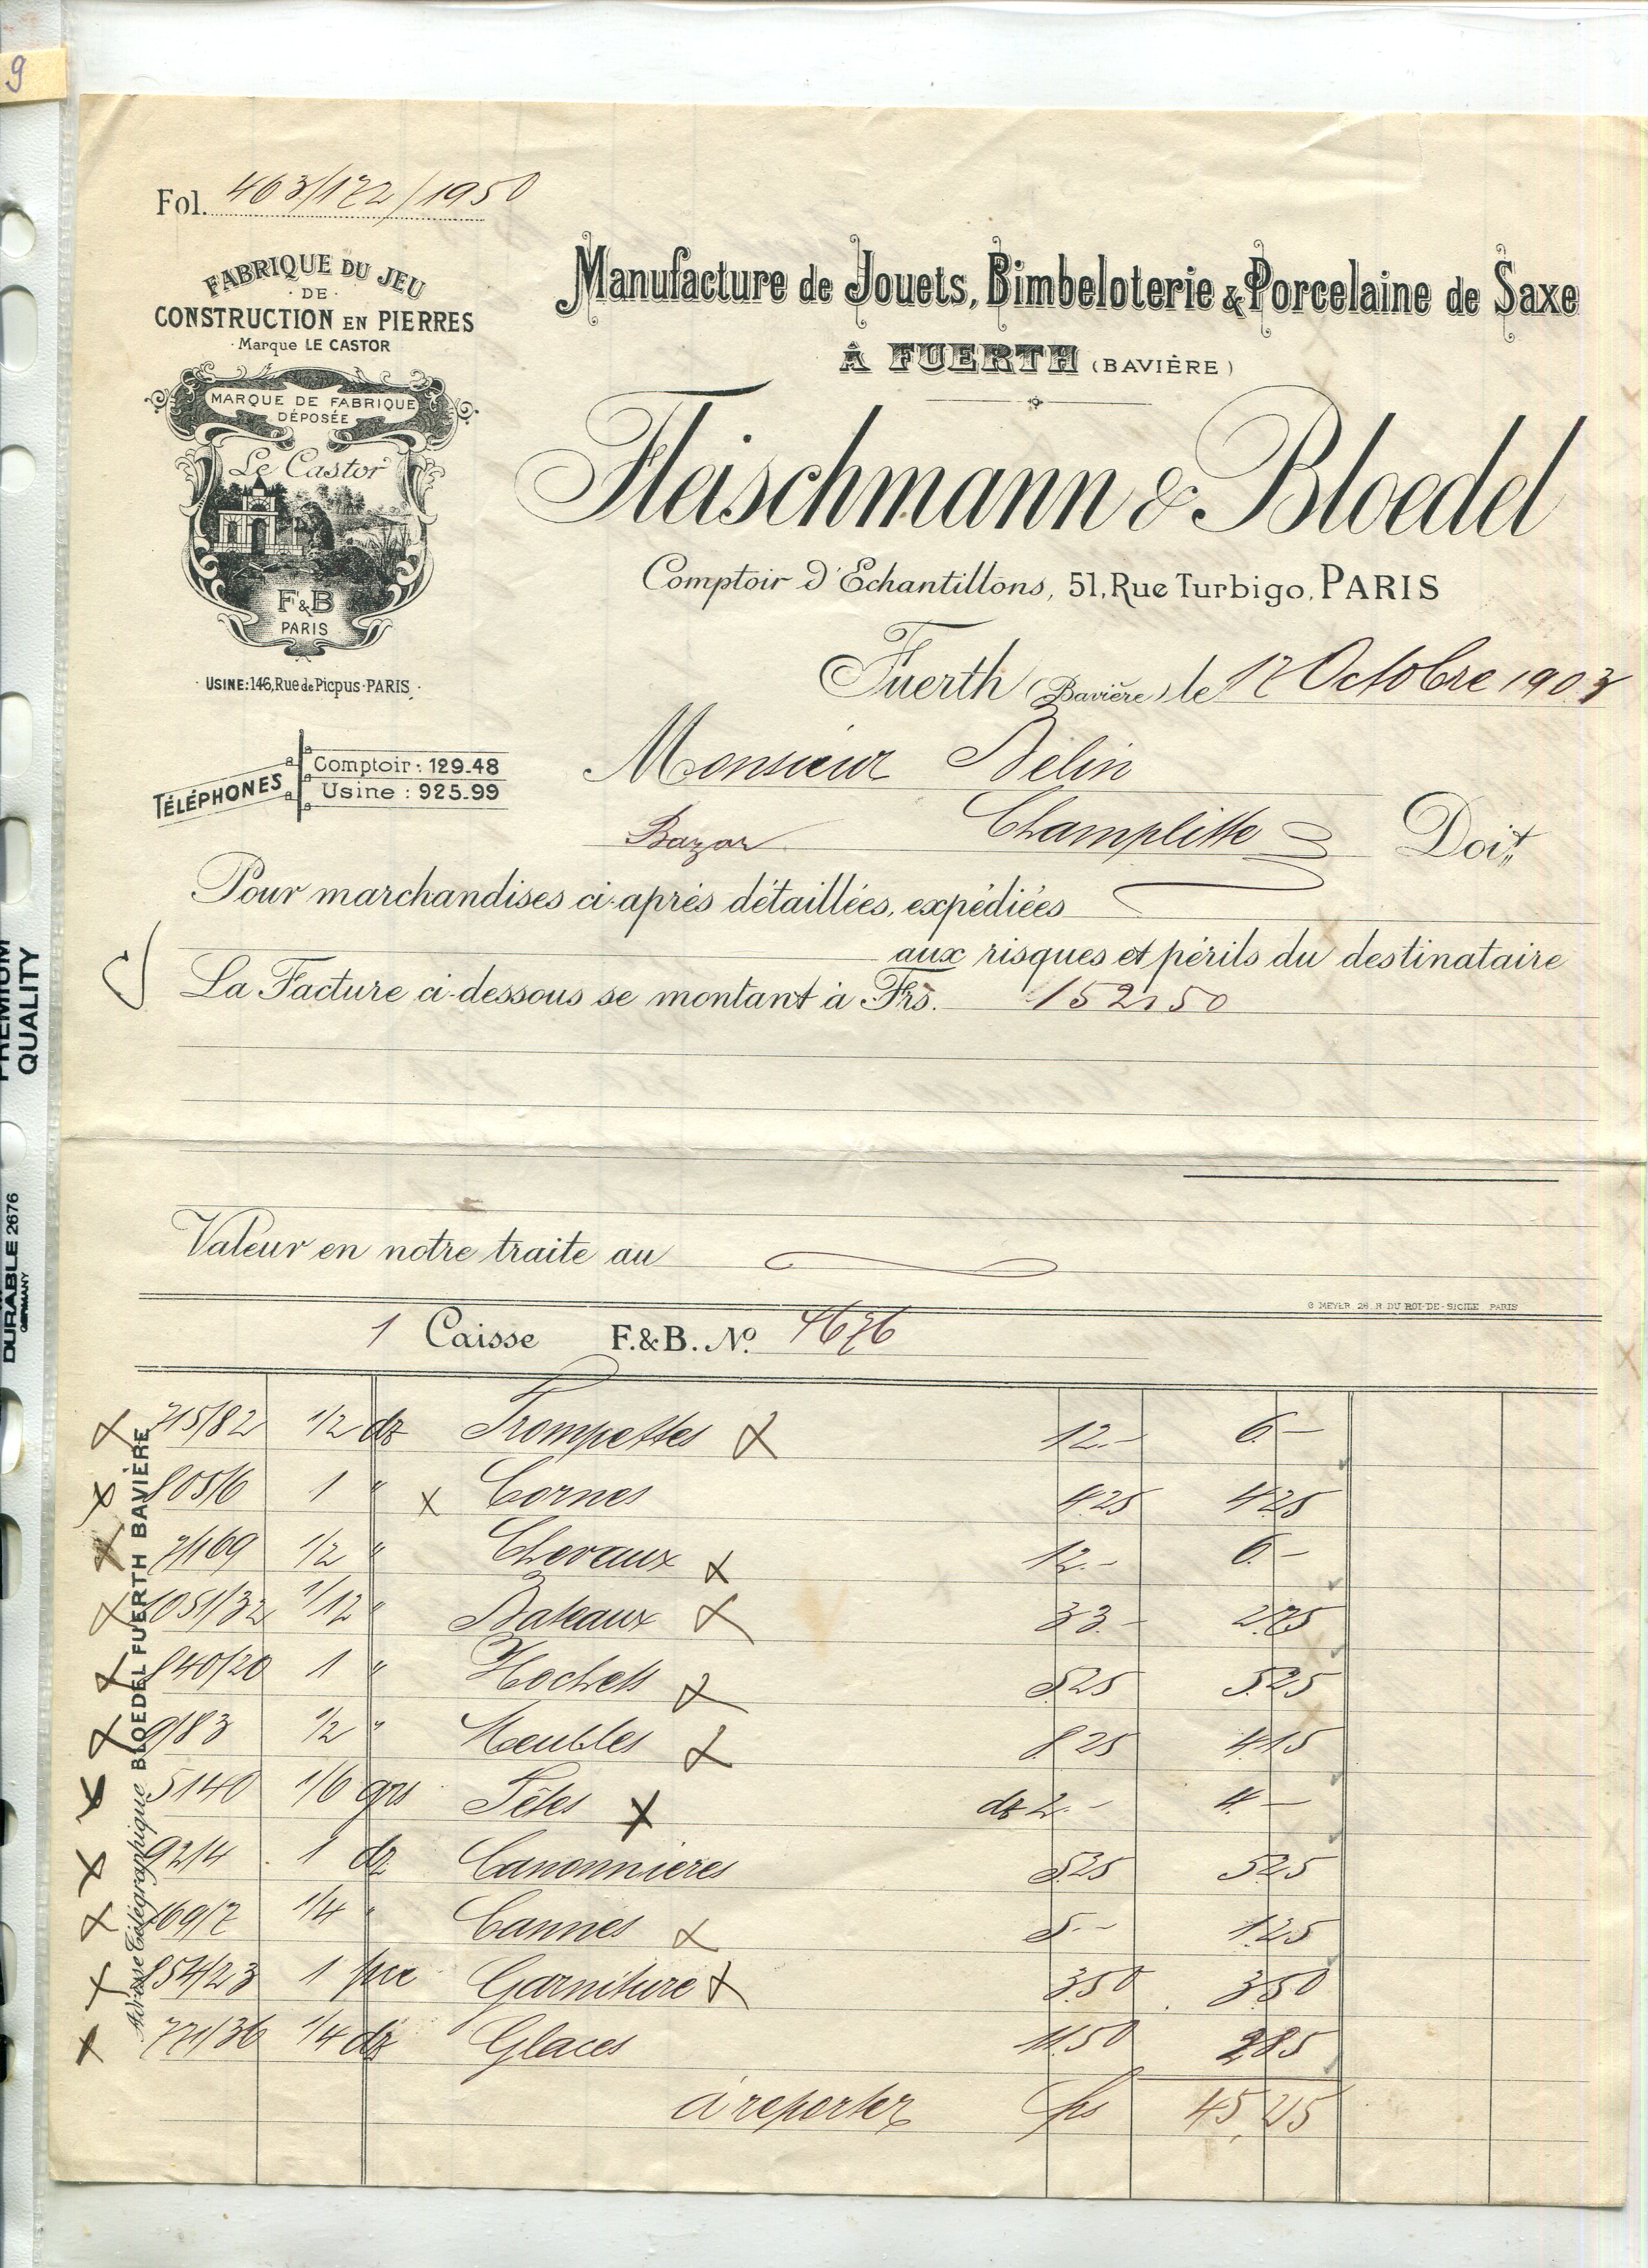 9
Fol. 463/172/1950
FABRIQUE DU JEU
DE
CONSTRUCTION EN PIERRES
Marque LE CASTOR
MARQUE DE FABRIQUE
DÉPOSÉE
Le Castor
F&B
PARIS
USINE: 146, Rue de Picpus - PARIS
TÉLÉPHONES
Comptoir : 129-48
Usine : 925-99
Manufacture de Jouets, Bimbeloterie & Porcelaine de Saxe
À FUERTH (BAVIÈRE)
Fleischmann & Bloedel
Comptoir d'Echantillons, 51, Rue Turbigo, PARIS
Fuerth (Bavière) le 17 Octobre 1903
Monsieur Belin
Bazar Champlitte Doit
Pour marchandises ci-après détaillées, expédiées
aux risques et périls du destinataire
La Facture ci-dessous se montant à Frs. 152,50
Valeur en notre traite au
G MEYER 26, R DU ROI-DE-SICILE PARIS
1 Caisse F.&B. No. 4676
715/82 1/2 dz Trompettes 12.- 6.-
805/6 1 " Cornes 4.25 4.25
7/169 1/2 " Chevaux 12.- 6.-
1051/32 1/12 " Bateaux 33.- 2.75
840/20 1 " Hochets 5.25 5.25
9/83 1/2 " Meubles 8.25 4.15
5140 1/6 grs Têtes dz 2.- 4.-
92/4 1 dz Canonnieres 5.25 5.25
169/7 1/4 " Cannes 5.- 1.25
854/23 1 pce Garniture 3.50 3.50
771/36 1/4 dz Glaces 11.50 2.85
à reporter frs 45,25
Adresse Télégraphique BLOEDEL FUERTH BAVIÈRE
PREMIUM
QUALITY
DURABLE 2676
GERMANY